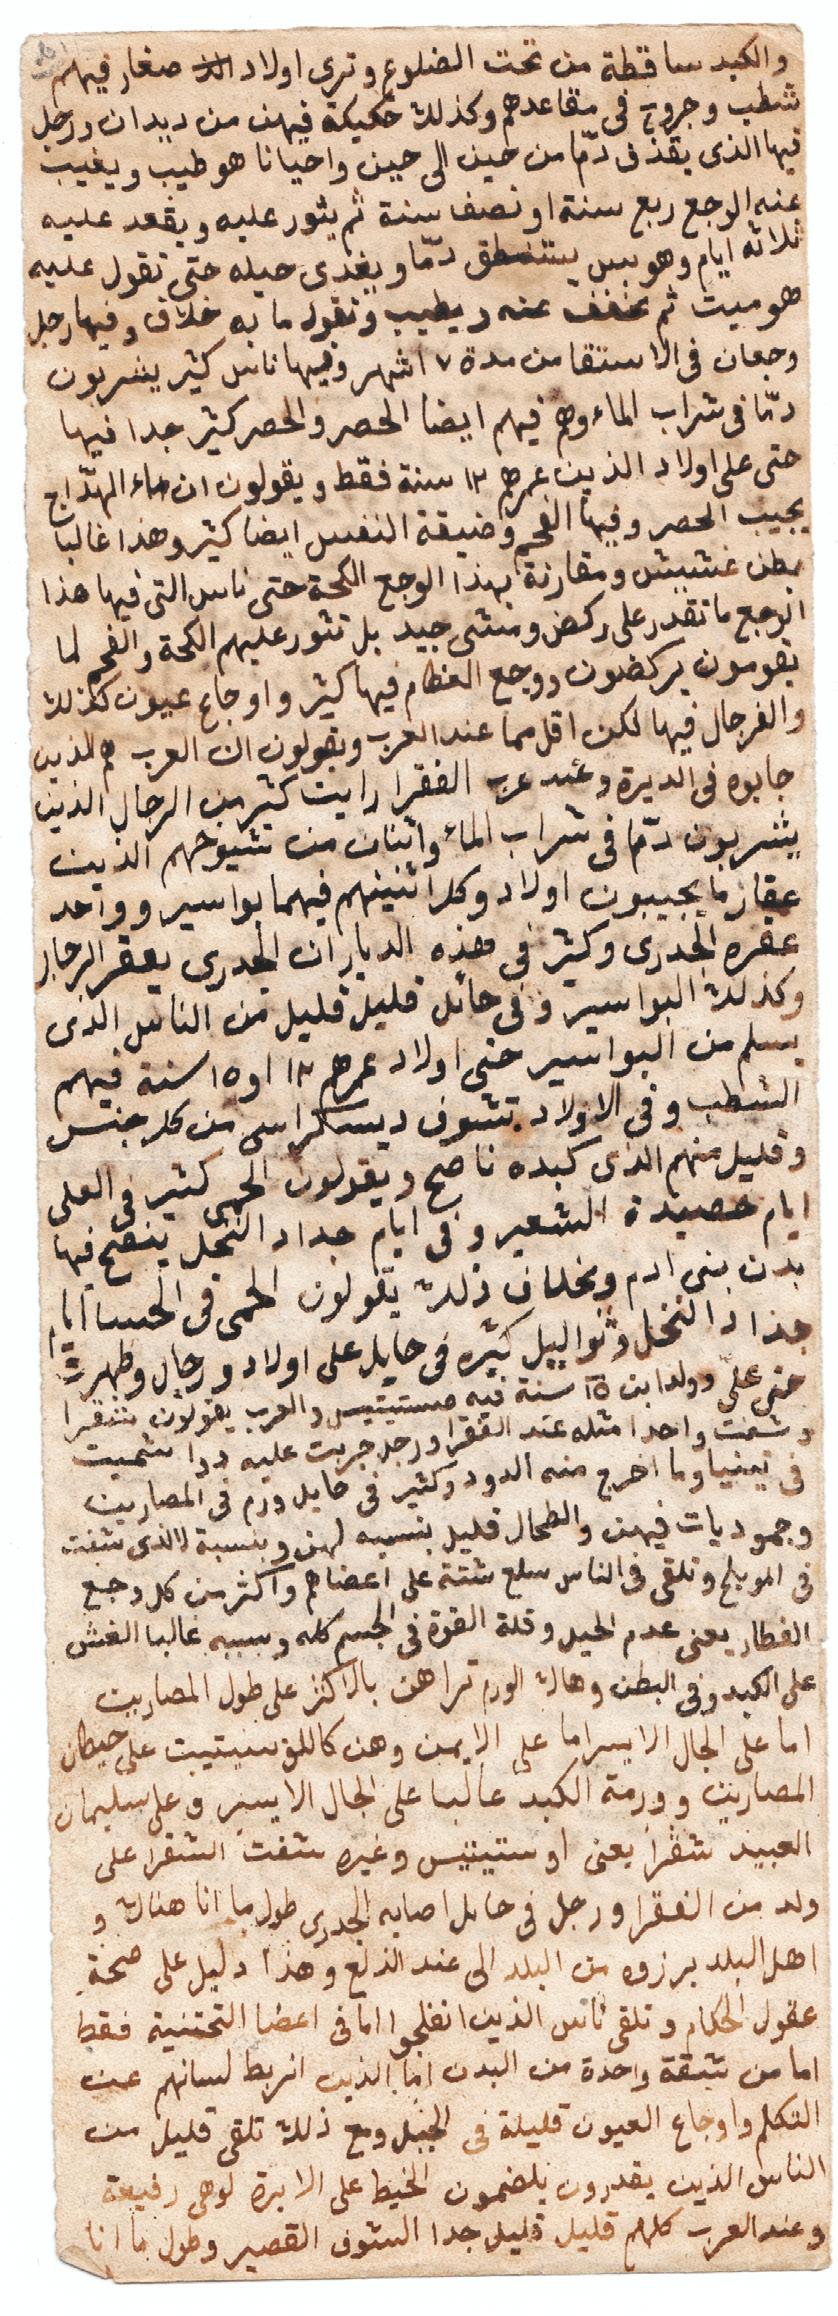 والكبد ساقطة من تحت الضلوع وترى اولاد صغار فيهم
شطب وجروح فى مقاعدهم وكذلك حكيكة فيهن من ديدان ورجل
فيها الذى يقذف دمّا من حين الى حين واحيانا هو طيب ويغيب
عنه الوجع ربع سنة او نصف سنة ثم يثور عليه ويقعد عليه
ثلاثه ايام وهو بس دمّا ويغدى حيله حتى تقول عليه
هو ميت ثم عنه ويطيب وتقول ما به خلاف وفيها رجل
وجعان فى الاستقا من مدة ٧ اشهر وفيها ناس كثير يشربون
دمّا فى شراب الماء وهم فيهم ايضا الحصر والحصر كثير جدا فيها
حتى على اولاد الذين عمرهم ١٢ سنة فقط ويقولون ان ماء الهدّاج
يجيب الحصر وفيها الفحم وضيقة النفس ايضا كثير وهذا غالبا
بطن غشيش ومقارنة بهذا الوجع الكحة حتى ناس التى فيها هذا
الوجع ما تقدر على ركض ومشى جيد بل تثور عليهم الكحة والفحم لما
يقومون يركضون ووجع العظام فيها كثير واوجاع عيون كذلك
والفرجال فيها لكن اقل مما عند العرب ويقولون ان العرب هم الذين
جابوه فى الديرة وعند عرب الفقرا رايت كثير من الرجال الذين
يشربون دمّا فى شراب الماء واثنان من شيوخهم الذين
عقار ما يجيبون اولاد وكلا اثنينهم فيهما بواسير وواحد
عقره الجدرى وكثير فى هذه الديار ان الجدرى يعقر الرجار
وكذلك البواسير وفى حائل قليل قليل من الناس الذى
يسلم من البواسير حتى اولاد عمرهم ١٢ او ١٥ سنة فيهم
الشطب وفى الاولاد تشوف ديسكراسى من كل جنس
وقليل منهم الذى كبده ناصح ويقولون الحمى كثير فى العلى
ايام حصيدة الشعير وفى ايام جداد النخل ينضح فيها
بدن بنى ادم وبخلاف ذلك يقولون الحمى فى الحسا ايام
جذاد النخل وثواليل كثيره فى حايل على اولاد ورجال وظهرت
حتى علىّ وولد ابن ١٥ سنة فيه والعرب يقولون شقرا
وشفت واحدا مثله عند الفقرا ورجل جربت عليه دوا سميت
فى تينيا وما اخرج منه الدود وكثير فى حايل ورم فى المصارين
وجموديات فيهن والطحال قليل بنسبه لهن وبنسبة لالذى شفت
فى المويلح وتلقى فى الناس سلع شتة على اعضاهم واكثر من كل وجع
الفطار يعنى عدم الحيل وقلة القوة فى الجسم كله وسببه غالبا الغش
على الكبد وفى البطن وهاك الورم تراهن بالاكثر على طول المصارين
اما على الجال الايسر اما على الايمن وهن على حيطان
المصارين وورمة الكبد غالبا على الجال الايسر وعلى سليمان
العبيد شقرا يعنى اوستيتيس وغيره شفت الشقرا على
ولد من الفقرا ورجل فى حايل اصابه الجدرى طول ما انا هناك و
اهل البلد برزوه من البلد الى عند وهذا دليل على صحة
عقول الحكام وتلقى ناس الذين انفلجوا اما فى اعضا التحتنية فقط
اما من شقة واحدة من البدن اما الذين انربط لسانهم عن
التكلم واوجاع العيون قليلة فى الجبل ومع ذلك تلقى قليل من
الناس الذين يقدرون يلضمون الخيط على الابرة لو هى رفيعة
وعند العرب كلهم قليل قليل جدا الشوف القصير وطول ما انا